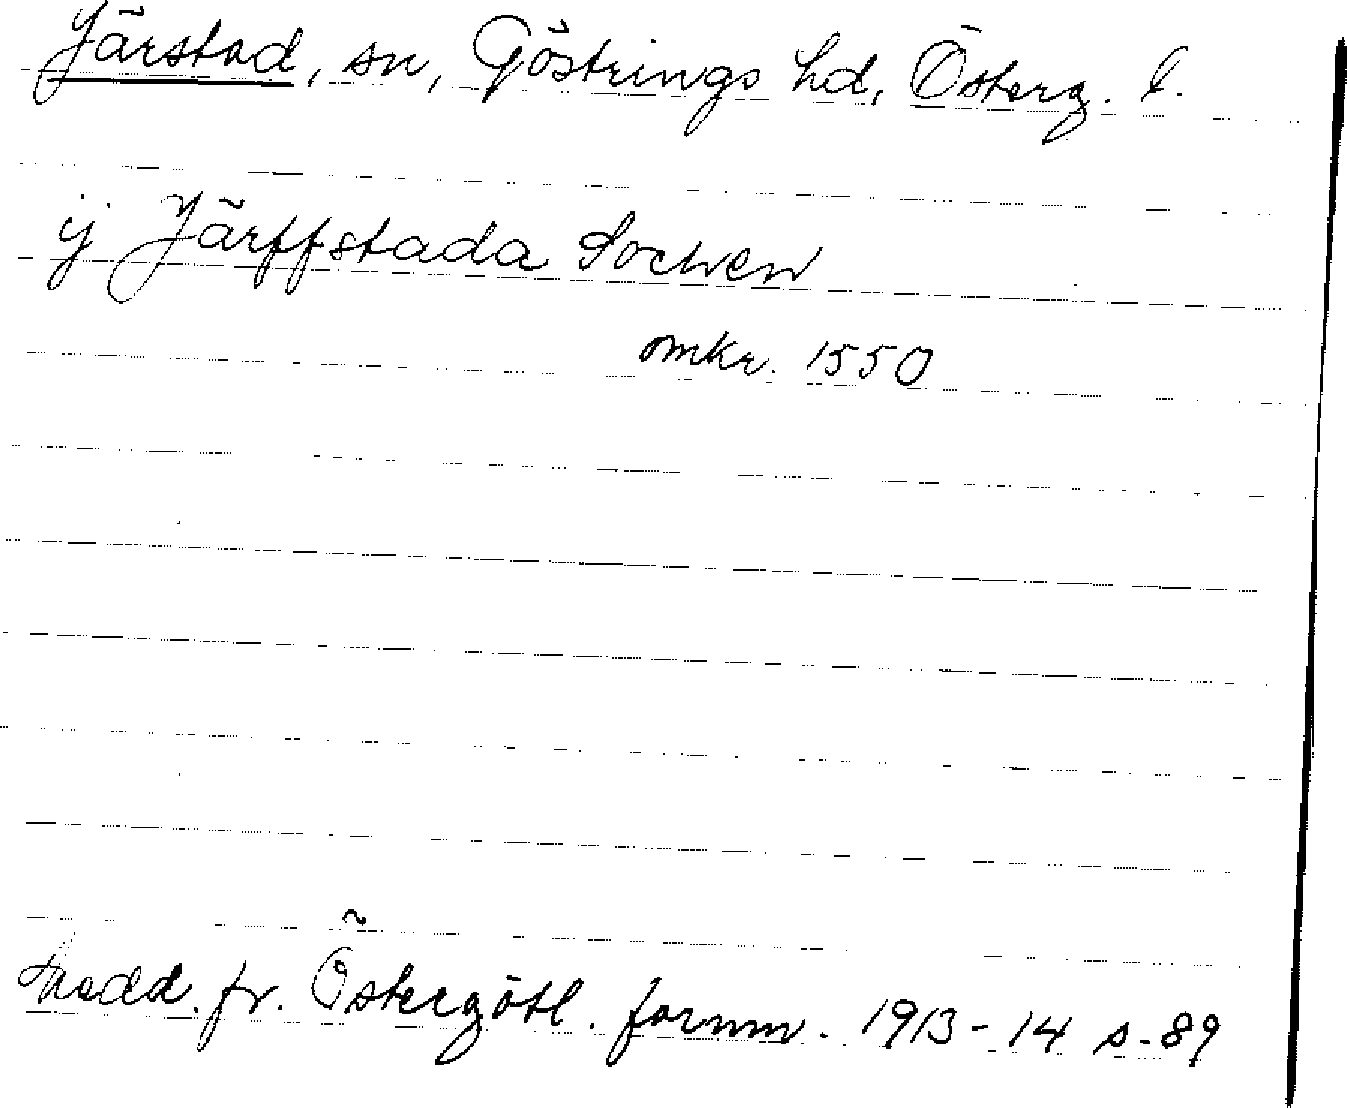 Järstad, sn, Göstrings hd, Österg. l.
ij Järffstada Sochen
omkr. 1550
Medd. fr. Östergötl. fornm. 1913-14 s. 89